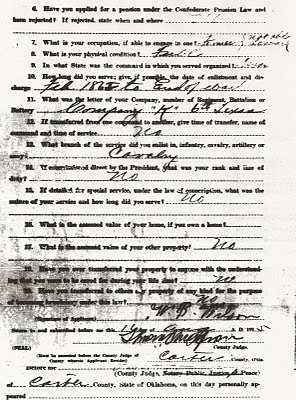 6. Have you applied for a pension under the Confederate Pension Law and
been rejected? If rejected, state when and where
7. What is your occupation, if able to engage in one? Farmer not able to work
8. What is your physical condition?
9. In what State was the command in which you served organized?
10. How long did you serve; give, if possible, the date of enlistment and dis-
charge Feb 1862 to End of war
11. What was the letter of your Company, number of Regiment, Battalion or
Battery Company K. 6th Texas
12. If transferred from one command to another, give time of transfer, name of
command and time of service. No
13. What branch of the service did you enlist in, infantry, cavalry, artillery or
navy? Cavalry
14. If commissioned direct by the President, what was your rank and line of
duty? No
15. If detailed for special service, under the law of conscription, what was the
nature of your service and how long did you serve? No
16. What is the assessed value of your home, if you own a home?
17. What is the assessed value of your other property? No
18. Have you ever transferred your property to anyone with the understand-
ing that you were to be cared for during your life does? No
19. Have you transferred to others any property of any kind for the purpose
of becoming a beneficiary under this law? No
W. B. Wilson
(Signature of Applicant)
Sworn to and subscribed before me this A. D. 1915
(SEAL) County Judge.
(Must be executed before the County Judge of
County wherein Applicant Resides) Carter County, Okla.
Before me (County Judge, Notary Public, Justice of Peace)
of Carter County, State of Oklahoma, on this day personally ap-
peared